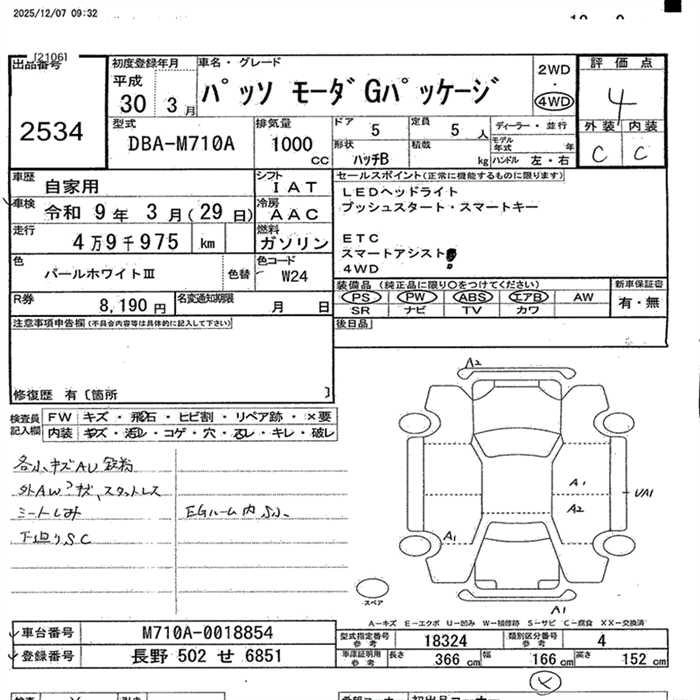 2025/12/07 09:32
[2106]
出品番号
2534
初度登録年月
平成
30年3月
車名・グレード
パッソ モーダGパッケージ
2WD
・
4WD
評価点
4
外装 内装
C C
型式
DBA-M710A
排気量
1000
cc
ドア
5
定員
5人
形状
ハッチB
積載
kg
ディーラー・並行
モデル年式 年
ハンドル 左・右
車歴
自家用
シフト
IAT
セールスポイント(正常に機能するものに限ります)
LEDヘッドライト
プッシュスタート・スマートキー
ETC
スマートアシスト
4WD
車検
令和 9年 3月(29日)
冷房
AAC
走行
4万9千975 km
燃料
ガソリン
色
パールホワイトⅢ
色替
色コード
W24
装備品 (純正品に限り○をつけてください)
PS PW ABS エアB AW
SR ナビ TV カワ
新車保証書
有・無
R券
8,190円
名変通知期限
月 日
後日品
注意事項申告欄(不具合内容等は具体的に記入して下さい)
修復歴 有〔箇所 〕
検査員
記入欄
FW キズ・飛石・ヒビ割・リペア跡・×要
内装 キズ・汚レ・コゲ・穴・スレ・キレ・破レ
各小キズAU
スタットレス
EGルーム内
下廻りSC
A2
A1
A2
A1
A1
スペア
A－キズ E－エクボ U－凹み W－補修跡 S－サビ C－腐食 XX－交換済
車台番号
M710A-0018854
登録番号
長野 502 せ 6851
型式指定番号
参考
18324
類別区分番号
参考
4
車庫証明用
参考
長さ 366cm 幅 166cm 高さ 152cm